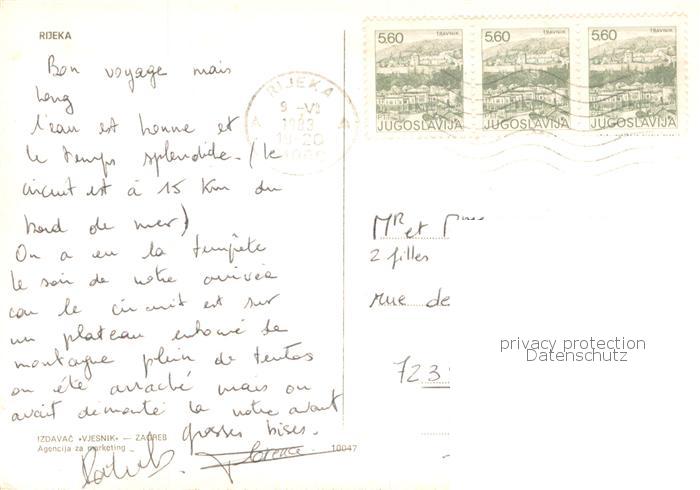 RIJEKA
Bon voyage mais
long
l'eau est bonne et
le temps splendide. (le
circuit est à 15 Km du
bord de mer)
On a eu la tempête
le soir de notre arrivée
car le circuit est sur
un plateau entouré de
montagne plein de tentes
on été arraché mais on
avait démonté la notre avant
grosses bises.
Florence
IZDAVAČ »VJESNIK« — ZAGREB
Agencija za marketing
10047
RIJEKA
1983
5.60 TRAVNIK
PTT JUGOSLAVIJA
5.60 TRAVNIK
JUGOSLAVIJA
5.60 TRAVNIK
JUGOSLAVIJA
Mr et
2 filles
rue de
723
privacy protection
Datenschutz